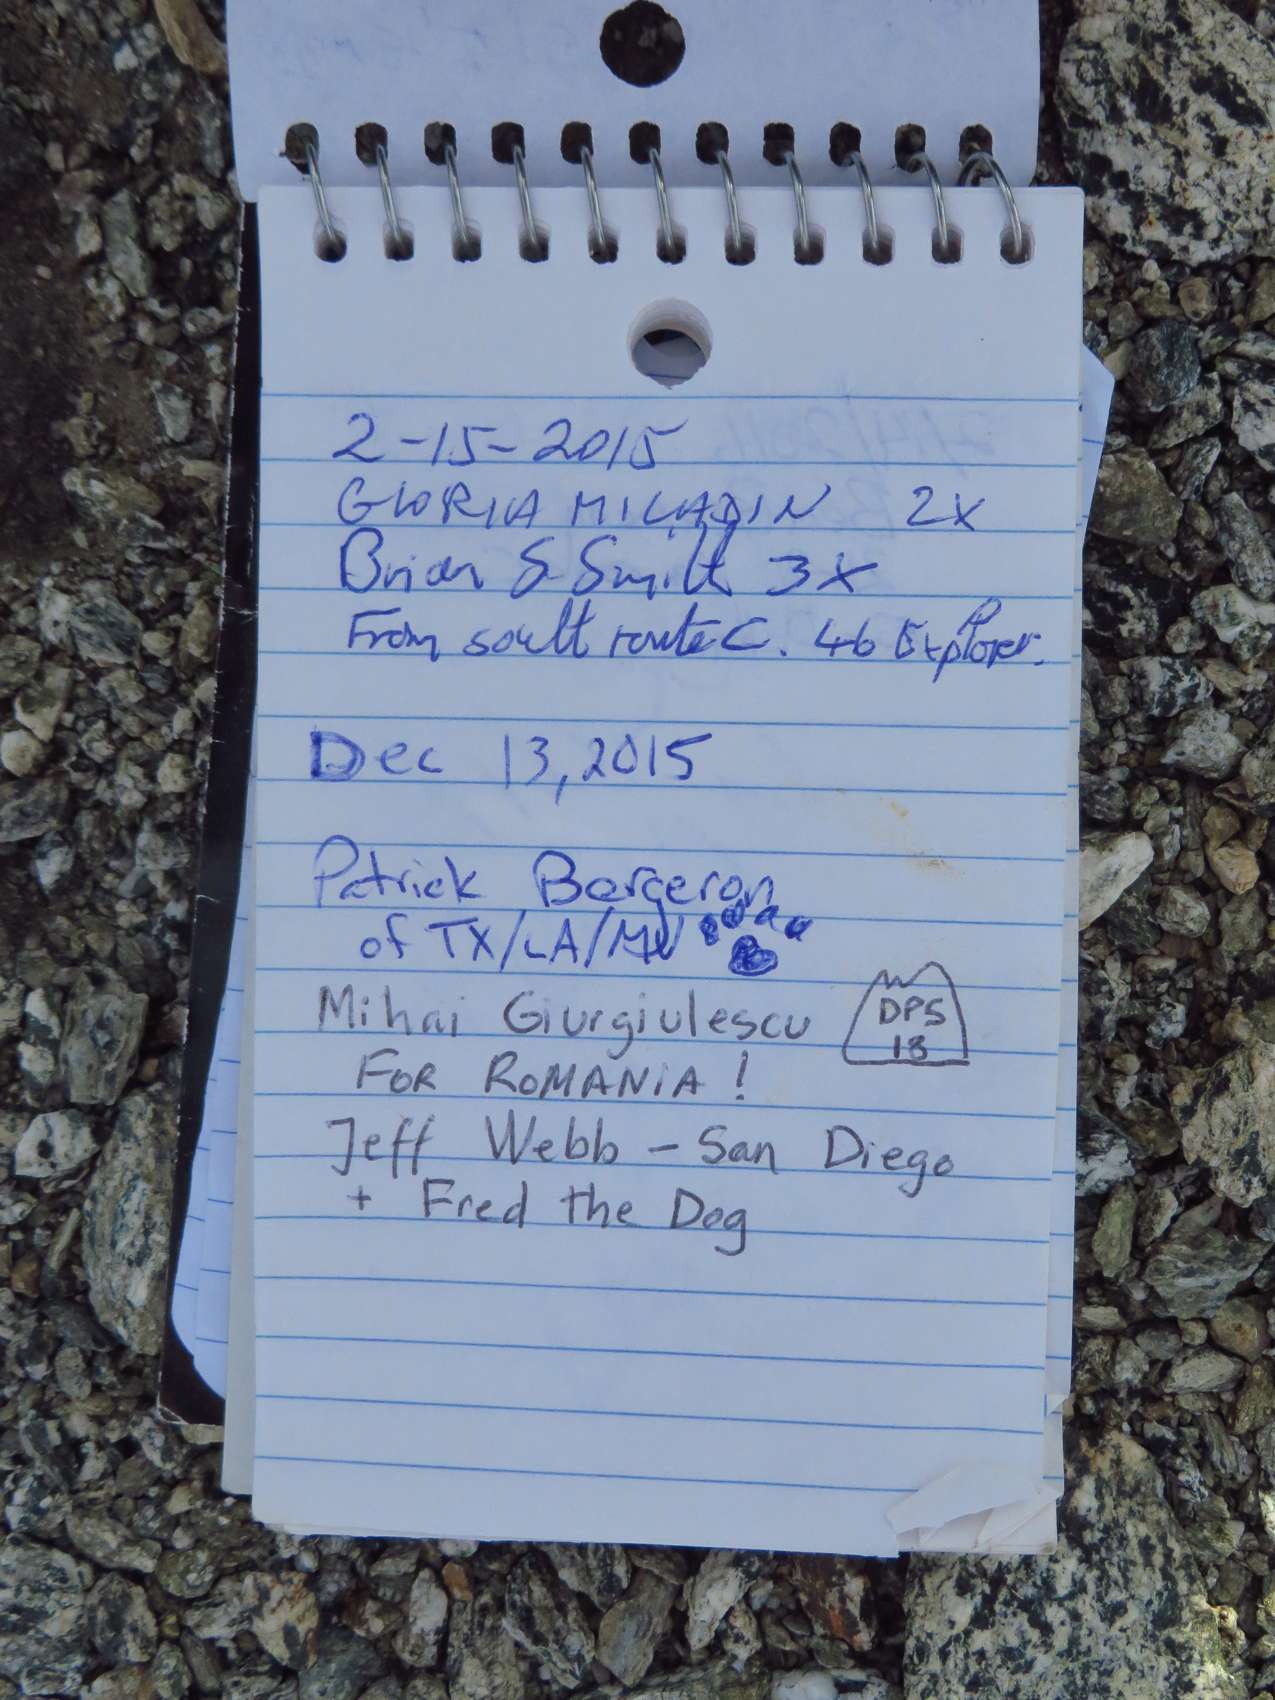 2-15-2015
GLORIA MILADIN 2X
Brian S Smith 3X
From south route C. 4b Explorer.
Dec 13, 2015
Patrick Bergeron
of TX/LA/MN
Mihai Giurgiulescu
DPS
18
FOR ROMANIA!
Jeff Webb - San Diego
+ Fred the Dog